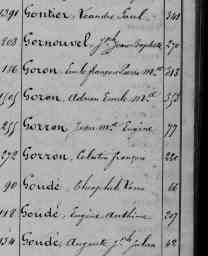 1391 Gontier, Léandre Paul 340
203 Gornouvel, Jph Jean Baptiste 270
116 Goron, Emile françois Pierre Mie 213
1505 Goron, Adrien Emile Mie 353
255 Gorron, Jean Mie Eugène 77
272 Gorron, Célestin françois 220
90 Goudé, Théophile 66
112 Goudé, Eugène Anthime 207
134 Goudé, Auguste Jph Julien 42